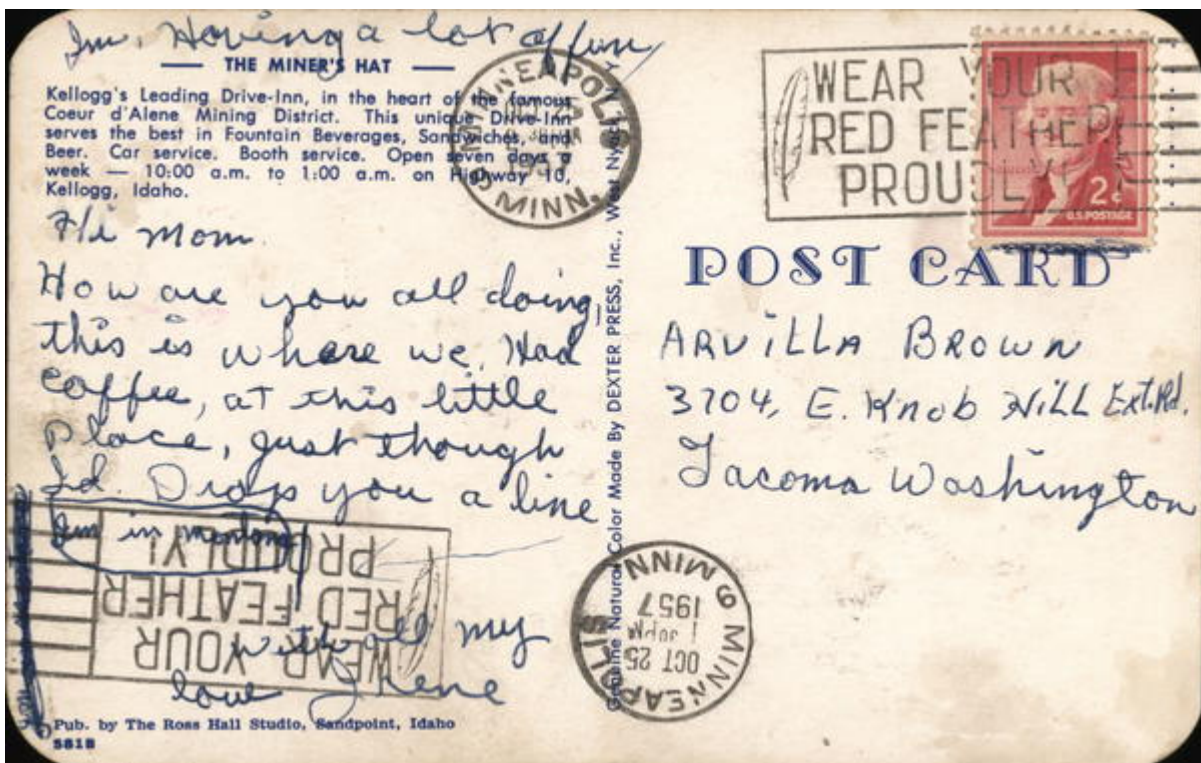 Im, Having a lot of fun
THE MINER'S HAT
Kellogg's Leading Drive-Inn, in the heart of the famous
Coeur d'Alene Mining District. This unique Drive-Inn
serves the best in Fountain Beverages, Sandwiches, and
Beer. Car service. Booth service. Open seven days a
week — 10:00 a.m. to 1:00 a.m. on Highway 10,
Kellogg, Idaho.
Hi Mom.
How are you all doing,
this is where we, Had
coffee, at this little
Place, just though
Id. Drop you a line
Im in
with all my
love Irene
Pub. by The Ross Hall Studio, Sandpoint, Idaho
5818
Genuine Natural Color Made By DEXTER PRESS, Inc., West Nyack,
MINNEAPOLIS
MINN.
WEAR YOUR
RED FEATHER
PROUDLY!
2¢
U.S. POSTAGE
POST CARD
ARVILLA BROWN
3704, E. Knob Hill Ext. Rd.
Tacoma Washington
WEAR YOUR
RED FEATHER
PROUDLY!
MINNEAPOLIS
9 MINN
OCT 25
1957